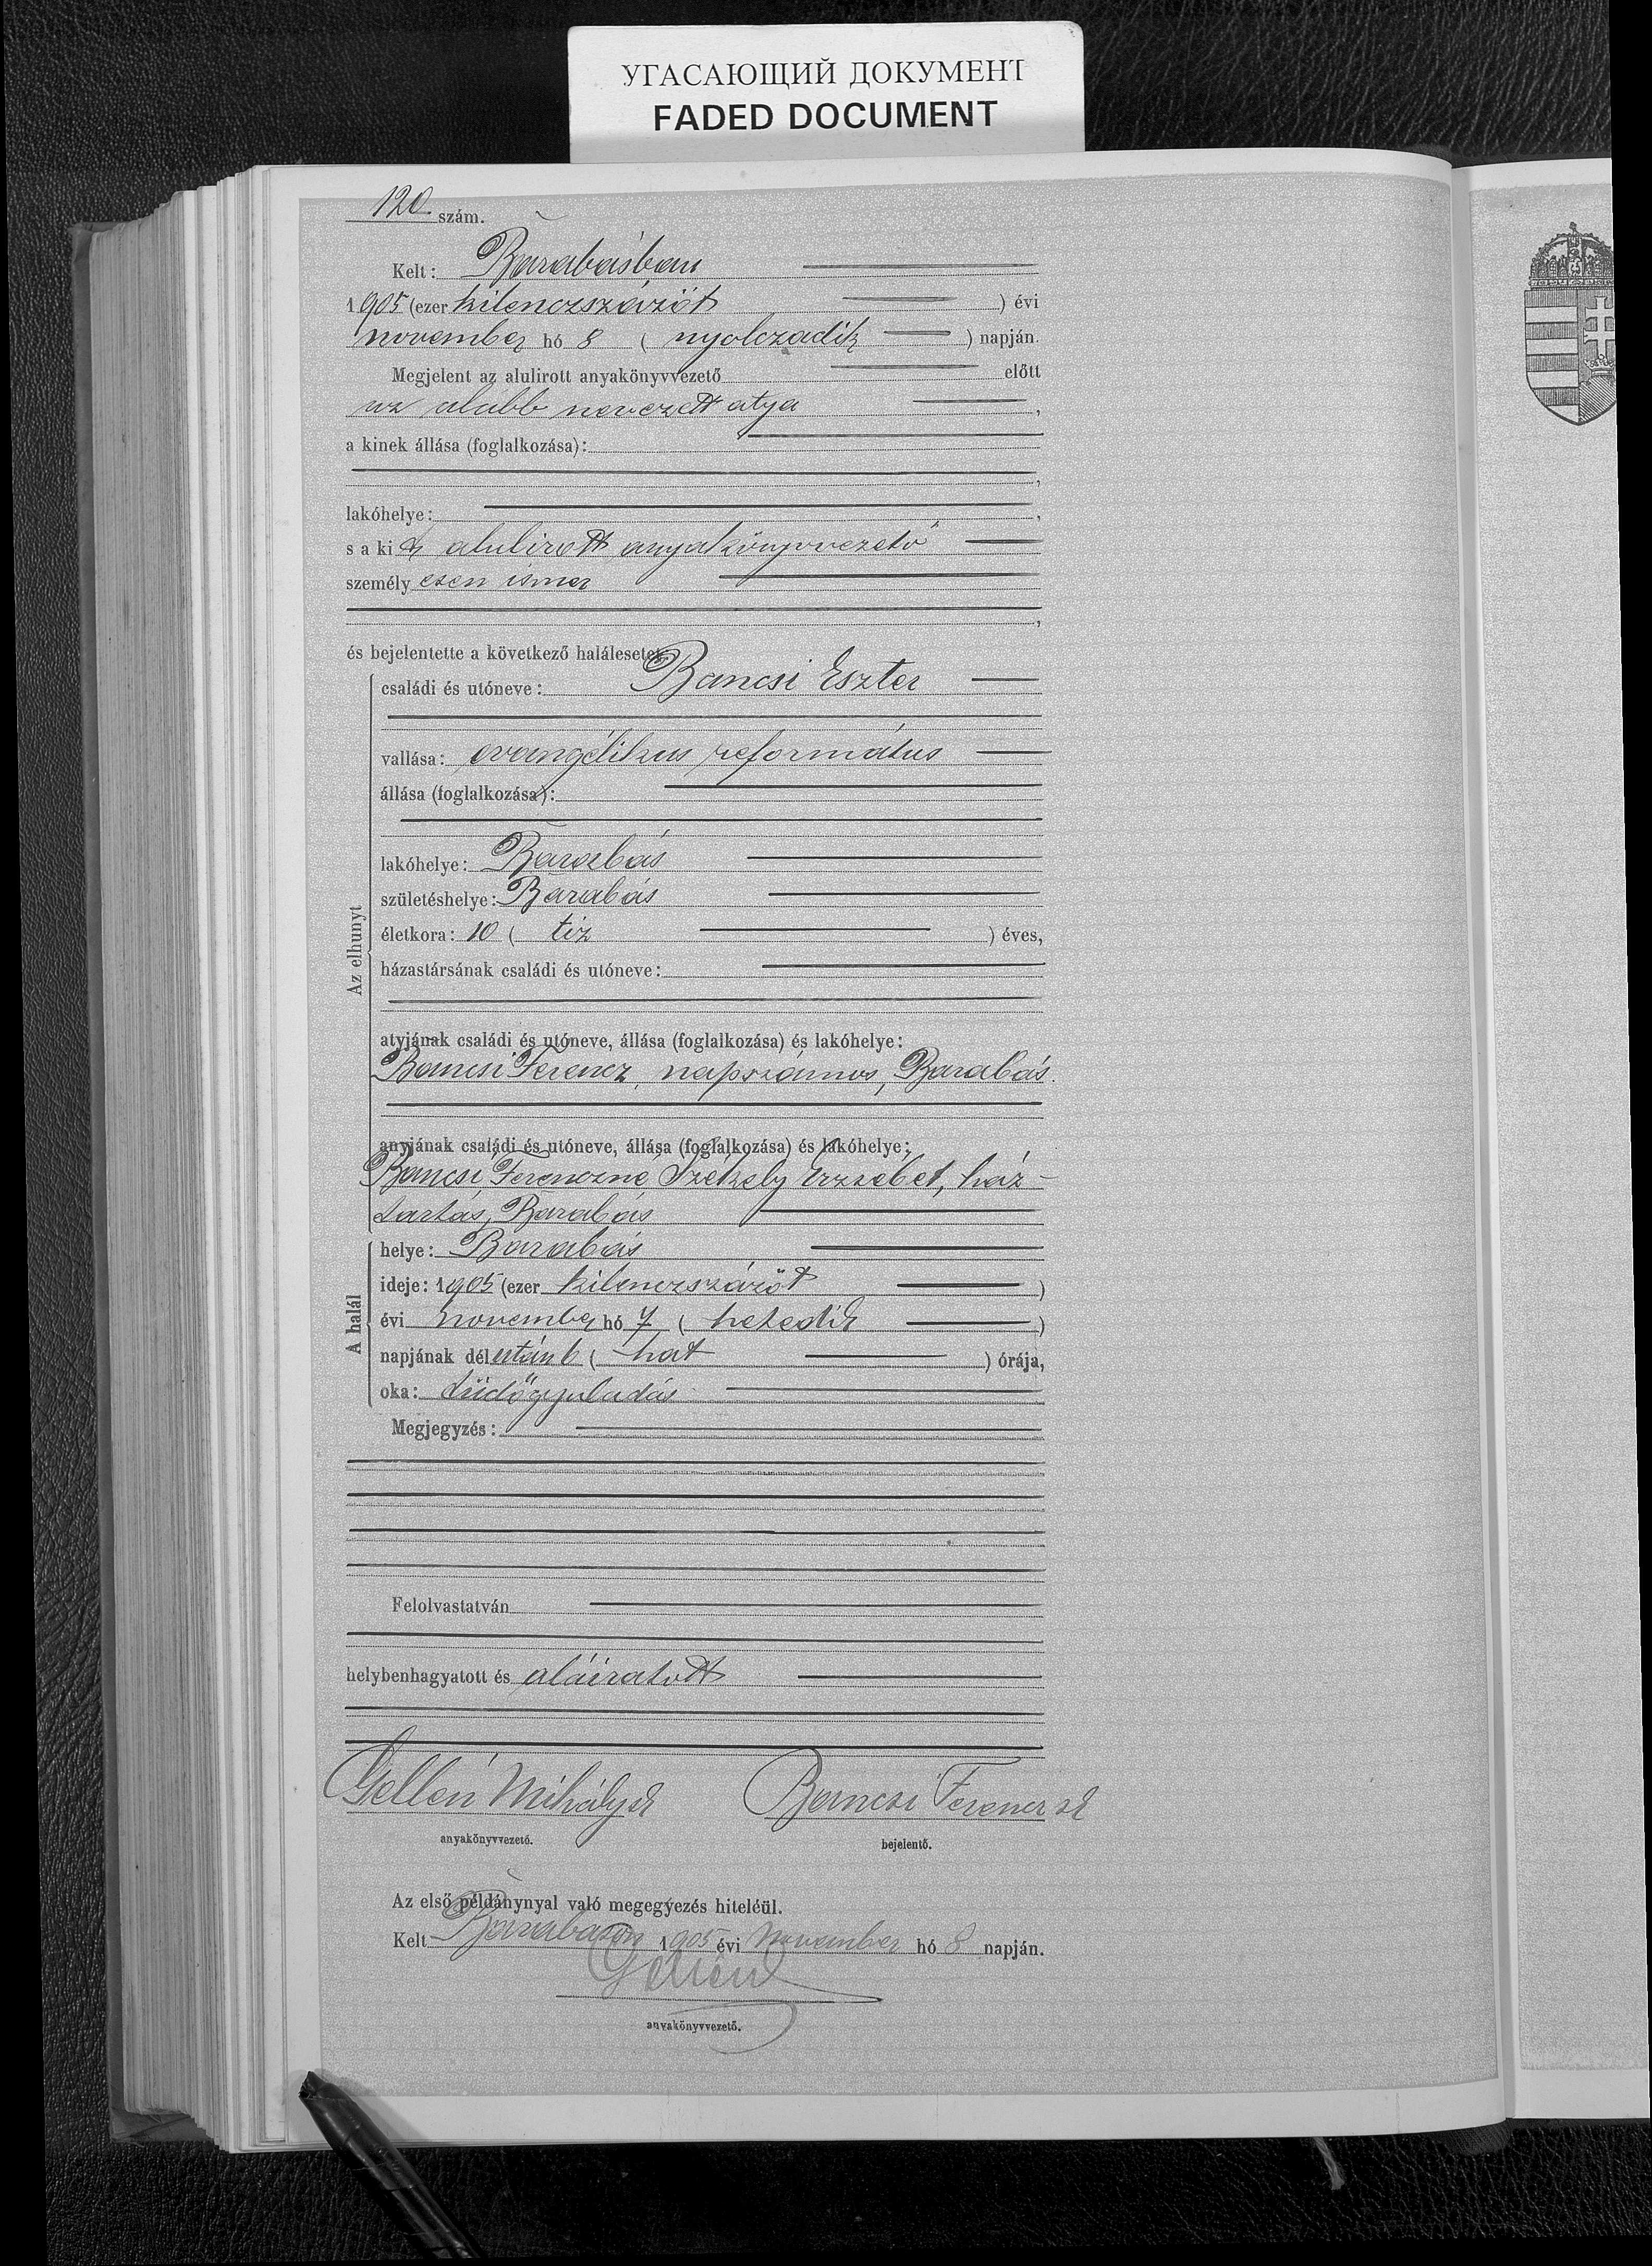 УГАСАЮЩИЙ ДОКУМЕНТ
FADED DOCUMENT
120 szám.
Kelt: Barabásban
1905 (ezer kilenczszázöt ) évi
november hó 8 ( nyolczadik ) napján.
Megjelent az alulirott anyakönyvvezető előtt
az alább nevezett atya ,
a kinek állása (foglalkozása):
,
lakóhelye: ,
s a kit alulirott anyakönyvvezető
személy esen ismer
,
és bejelentette a következő halálesetet:
Az elhunyt
családi és utóneve: Bancsi Eszter
vallása: evangélikus református
állása (foglalkozása):
lakóhelye: Barabás
születéshelye: Barabás
életkora: 10 ( tiz ) éves,
házastársának családi és utóneve:
atyjának családi és utóneve, állása (foglalkozása) és lakóhelye:
Bancsi Ferencz, napszámos, Barabás.
anyjának családi és utóneve, állása (foglalkozása) és lakóhelye:
Bancsi Ferenczné Székely Erzsébet, ház-
tartás, Barabás
A halál
helye: Barabás
ideje: 1905 (ezer kilenczszázöt )
évi november hó 7 ( hetedik )
napjának délután 6 ( hat ) órája,
oka: tüdőgyuladás
Megjegyzés:
Felolvastatván
helybenhagyatott és aláiratott
Gellén Mihály sk Bancsi Ferencz sk
anyakönyvvezető. bejelentő.
Az első példánynyal való megegyezés hiteléül.
Kelt Barabáson 1905 évi November hó 8 napján.
Gellén
anyakönyvvezető.